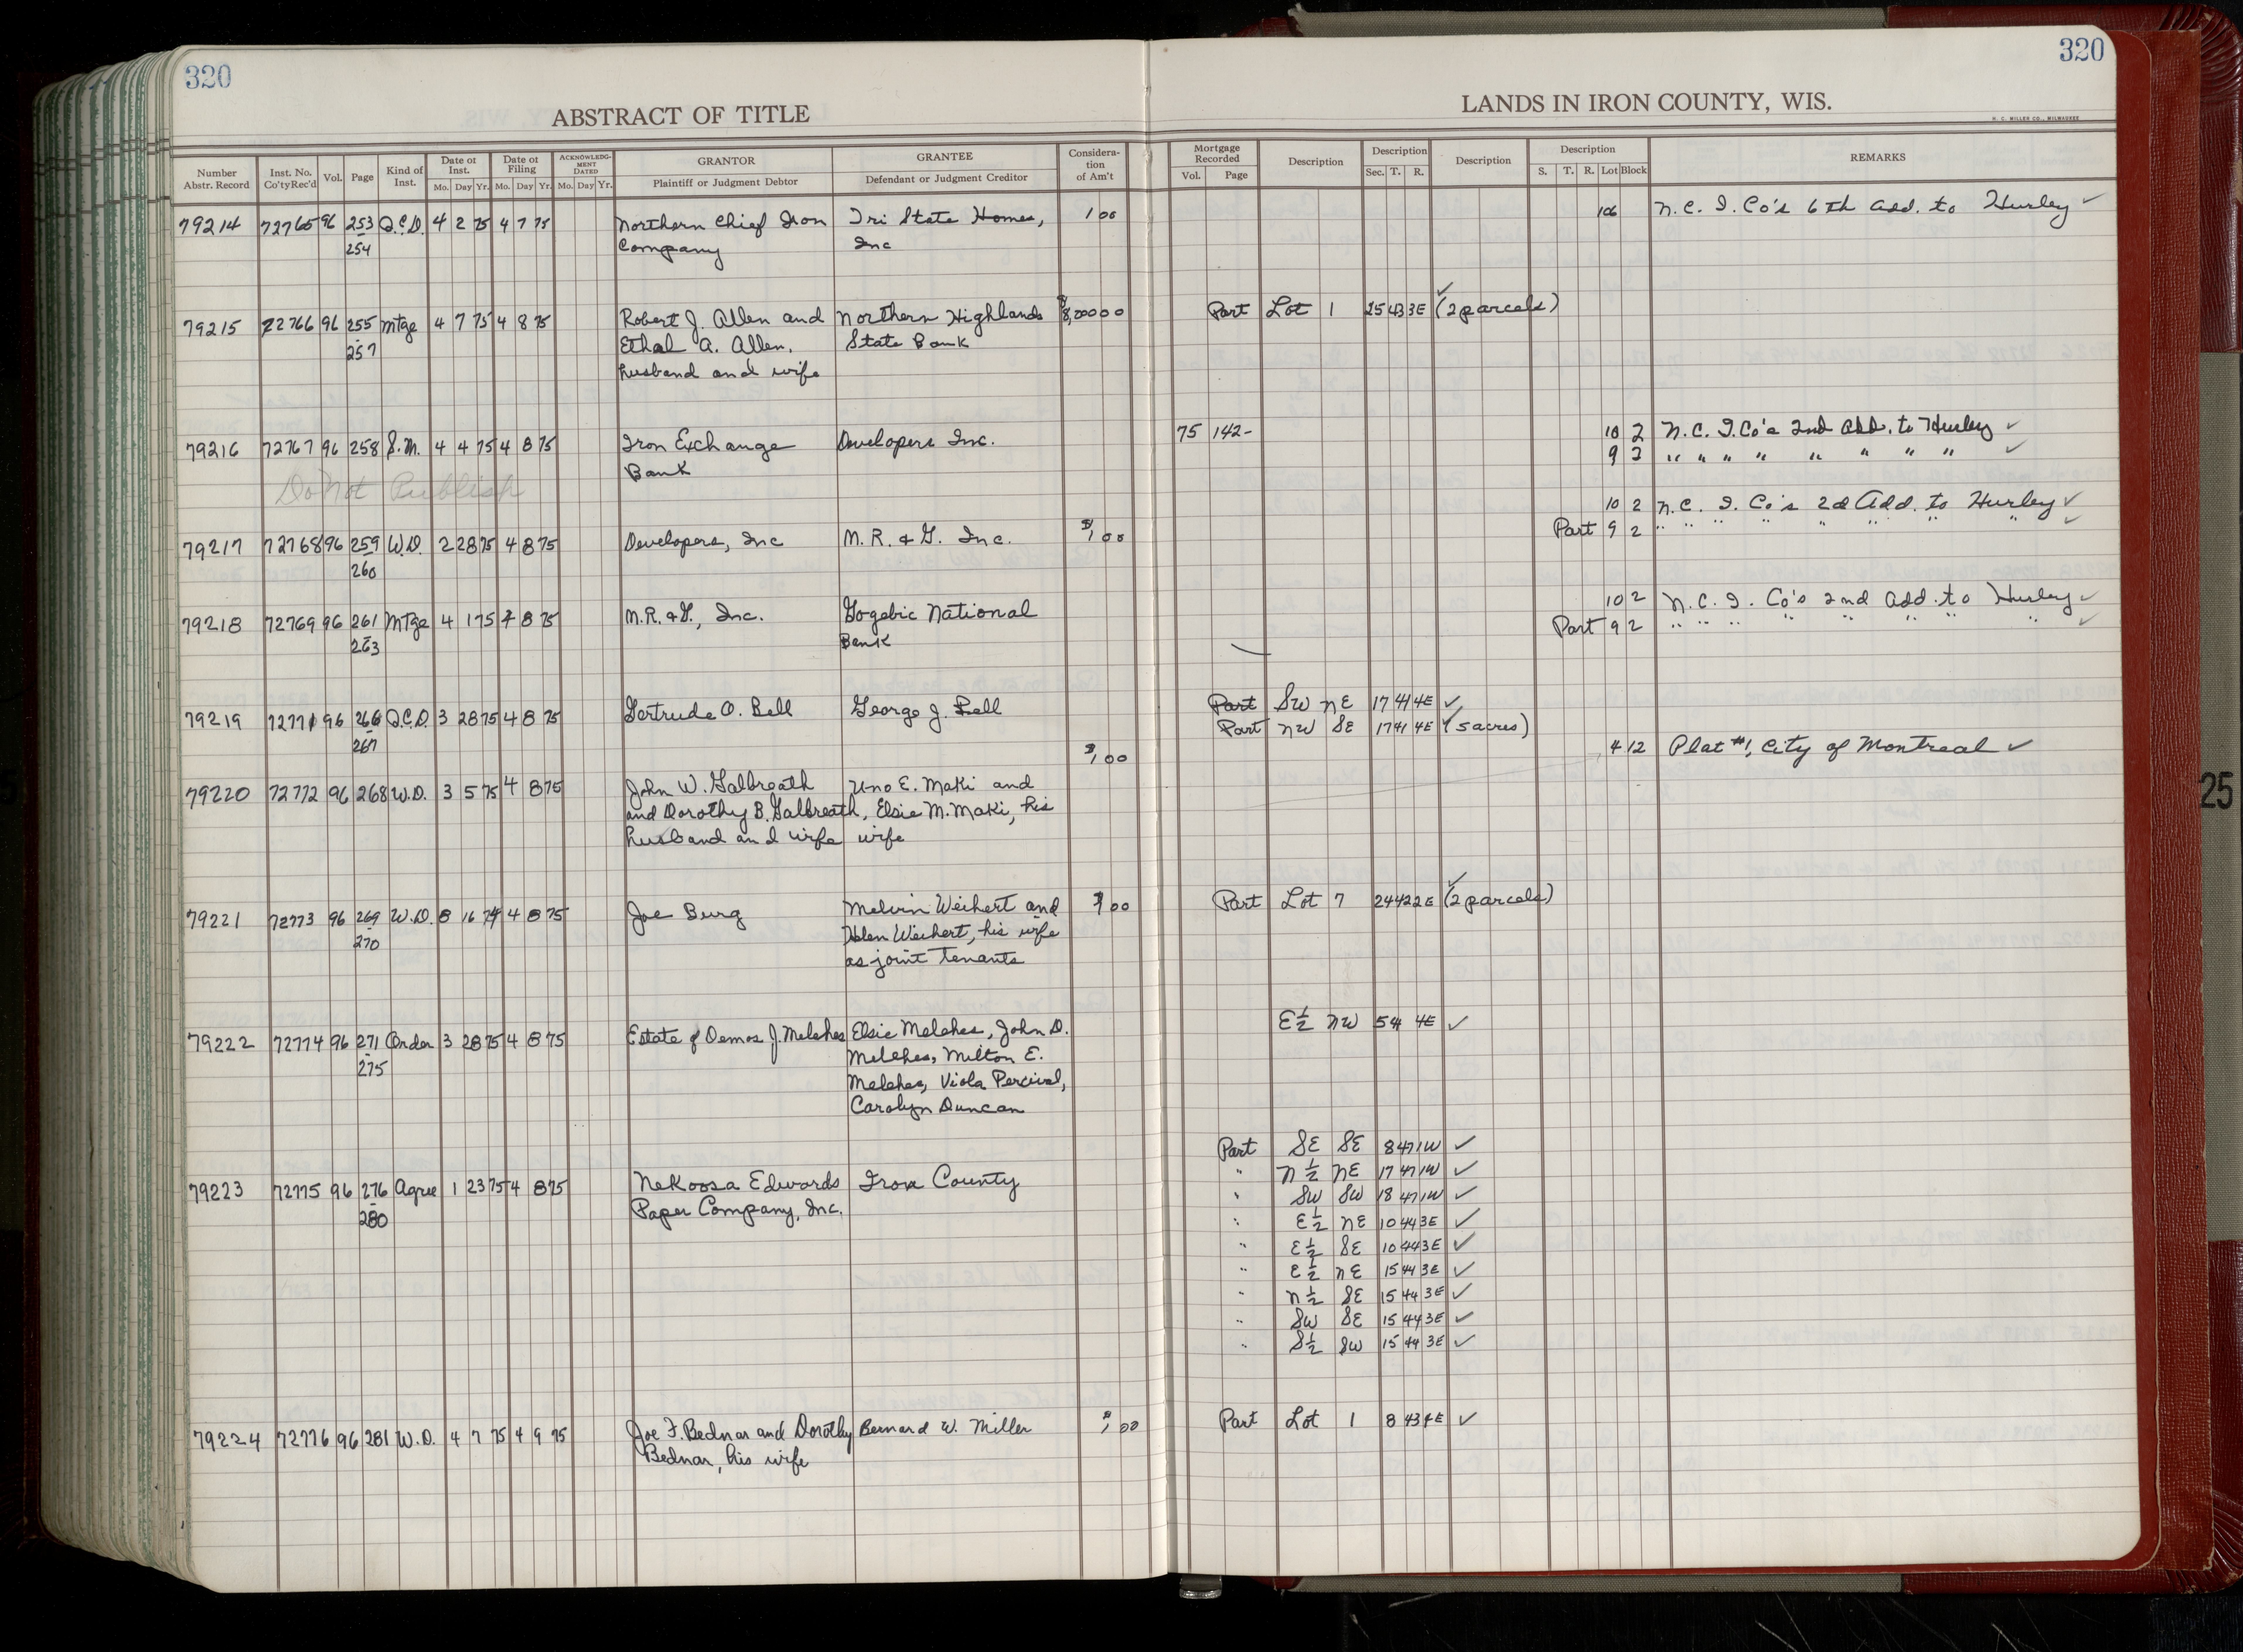 320
320
ABSTRACT OF TITLE
LANDS IN IRON COUNTY, WIS.
H. C. MILLER CO., MILWAUKEE
Number Abstr. Record Inst. No. Co'ty Rec'd Vol. Page Kind of Inst. Date of Inst. Mo. Day Yr. Date of Filing Mo. Day Yr. ACKNOWLEDGMENT DATED Mo. Day Yr. GRANTOR Plaintiff or Judgment Debtor GRANTEE Defendant or Judgment Creditor Consideration of Am't
Mortgage Recorded Vol. Page Description Description Sec. T. R. Description Description S. T. R. Lot Block REMARKS
79214 72765 96 253 Q.C.D. 4 2 75 4 7 75 Northern Chief Iron Tri State Homes, 1 00 106 N.C. I. Co's 6th Add. to Hurley ✓
254 Company Inc
79215 72766 96 255 Mtge 4 7 75 4 8 75 Robert J. Allen and Northern Highlands $8,000 00 Part Lot 1 25 43 3E (2 parcels) ✓
257 Ethel A. Allen, State Bank
husband and wife
79216 72767 96 258 S.M. 4 4 75 4 8 75 Iron Exchange Developers Inc. 75 142- 10 2 N.C. I. Co's 2nd Add. to Hurley ✓
Bank 9 2 " " " " " " " " ✓
Do Not Publish
79217 72768 96 259 W.D. 2 28 75 4 8 75 Developers, Inc M. R. & G. Inc. $1 00 10 2 N.C. I. Co's 2d Add. to Hurley ✓
260 Part 9 2 " " " " " " " " ✓
79218 72769 96 261 Mtge 4 1 75 4 8 75 M.R. & G., Inc. Gogebic National 10 2 N.C. I. Co's 2nd Add. to Hurley ✓
263 Bank Part 9 2 " " " " " " " " ✓
79219 72771 96 266 Q.C.D. 3 28 75 4 8 75 Gertrude O. Bell George J. Bell Part SW NE 17 41 4E ✓
267 Part NW SE 17 41 4E ✓ (5 acres)
79220 72772 96 268 W.D. 3 5 75 4 8 75 John W. Galbreath Uno E. Maki and $1 00 4 12 Plat #1, City of Montreal ✓
and Dorothy B. Galbreath, Elsie M. Maki, his
husband and wife wife
79221 72773 96 269 W.D. 8 16 74 4 8 75 Joe Burg Melvin Weihert and $1 00 Part Lot 7 24 42 2E (2 parcels) ✓
270 Helen Weihert, his wife
as joint tenants
79222 72774 96 271 Order 3 28 75 4 8 75 Estate of J. Melches Elsie Melches, John D. E½ NW 5 4E ✓
275 Melches, Milton E.
Melches, Viola Percival,
Carolyn Duncan
79223 72775 96 276 Agree 1 23 75 4 8 75 Nekoosa Edwards Iron County
280 Paper Company, Inc.
Part SE SE 8 47 1W ✓
" N½ NE 17 47 1W ✓
" SW SW 18 47 1W ✓
" E½ NE 10 44 3E ✓
" E½ SE 10 44 3E ✓
" E½ NE 15 44 3E ✓
" N½ SE 15 44 3E ✓
" SW SE 15 44 3E ✓
" S½ SW 15 44 3E ✓
79224 72776 96 281 W.D. 4 7 75 4 9 75 Joe F. Bednar and Dorothy Bernard W. Miller $1 00 Part Lot 1 8 43 4E ✓
Bednar, his wife
25